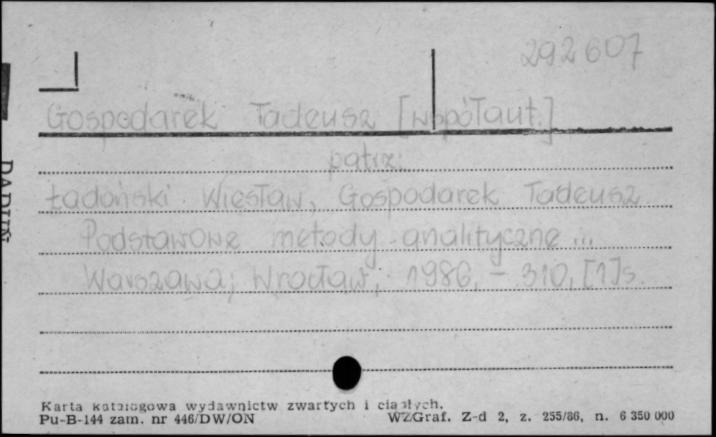 292607
Gospodarek Tadeusz [współaut.]
patrz:
Ładoński Wiesław, Gospodarek Tadeusz
Podstawowe metody analityczne...
Warszawa; Wrocław, 1986, - 310, [1] s.
Karta katalogowa wydawnictw zwartych i ciągłych.
Pu-B-144 zam. nr 446/DW/ON WZGraf. Z-d 2, z. 255/86, n. 6 350 000